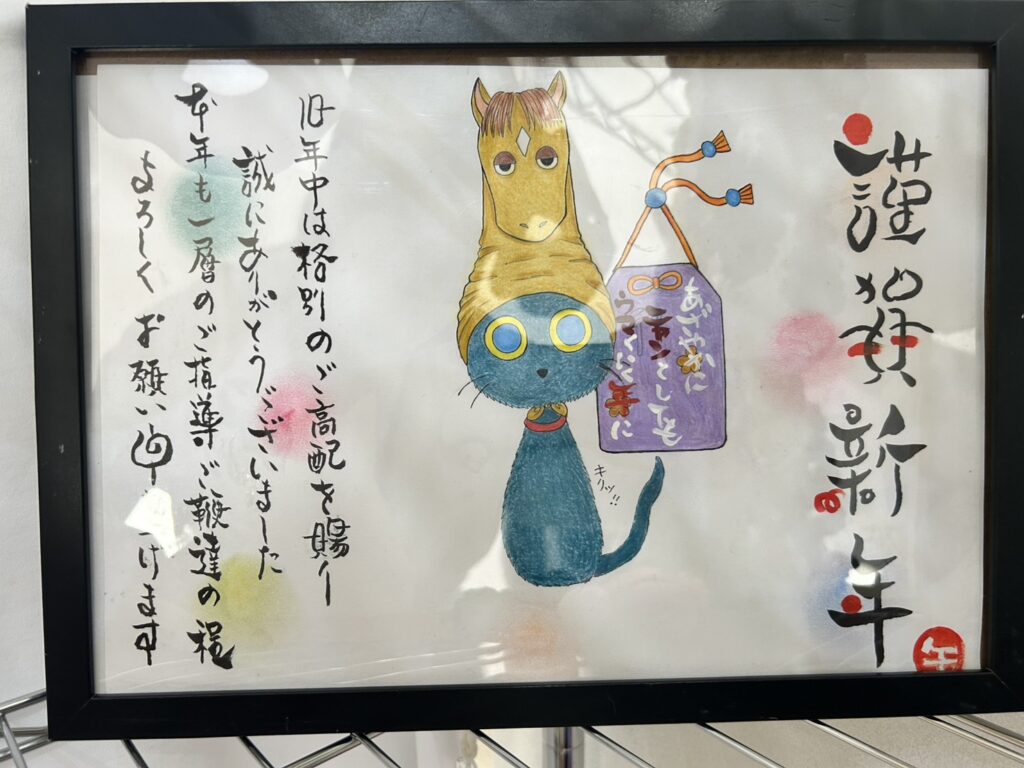 謹賀新年
午
あざやかに
ニャンとしても
ウマくいく年に
キリッ!!
旧年中は格別のご高配を賜り
誠にありがとうございました
本年も一層のご指導ご鞭達の程
よろしくお願い申し上げます